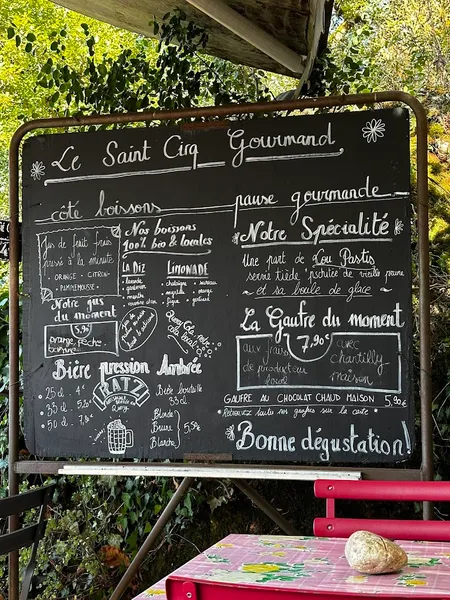 Le Saint Cirq Gourmand
côté boissons
pause gourmande
Jus de fruit frais
pressé à la minute
- ORANGE - CITRON -
- PAMPLEMOUSSE -
Nos boissons
100% bio & locales
LA DIZ
LIMONADE
Notre jus
du moment
5.90€
orange, pêche
Bière pression Ambrée
RATZ
25 cl.
35 cl.
50 cl.
Bière bouteille
33cl
Blonde
Brune
Blanche
5,50€
Notre Spécialité
Une part de Lou Pastis
servie tiède, pschitée de vieille prune
et sa boule de glace
La Gaufre du moment
7,90€
aux fruits
de producteur
local
avec
chantilly
maison
GAUFRE AU CHOCOLAT CHAUD MAISON 5,90€
Retrouvez toutes nos gaufres sur la carte
Bonne dégustation!